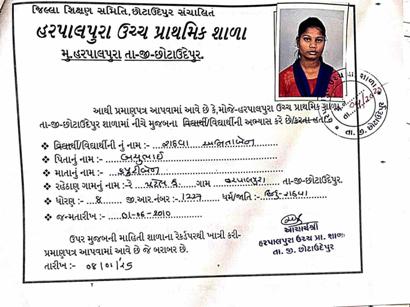 જિલ્લા શિક્ષણ સમિતિ, છોટાઉદેપુર સંચાલિત
હરપાલપુરા ઉચ્ચ પ્રાથમિક શાળા
મુ.હરપાલપુરા તા-જી-છોટાઉદેપુર.
આથી પ્રમાણપત્ર આપવામાં આવે છે કે,મોજે-હરપાલપુરા ઉચ્ચ પ્રાથમિક
તા-જી-છોટાઉદેપુર શાળામાં નીચે મુજબના વિદ્યાર્થી/વિદ્યાર્થીની અભ્યાસ કરે છે/
વિદ્યાર્થી/વિદ્યાર્થીની નું નામ :- રાઠવા
પિતાનું નામ :-
માતાનું નામ :-
રહેઠાણ ગામનું નામ:- ગામ હરપાલપુરા તા-જી-છોટાઉદેપુર.
ધોરણ :- 8 જી.આર.નંબર :- 1227 ધર્મ/જાતિ :- હિન્દુ-રાઠવા
જન્મતારીખ :- 01-06-2010
ઉપર મુજબની માહિતી શાળાના રેકર્ડપરથી ખાત્રી કરી-
પ્રમાણપત્ર આપવામાં આવે છે જે બરાબર છે.
તારીખ :- 08/01/25
આચાર્યશ્રી
હરપાલપુરા ઉચ્ચ પ્રા. શાળા
તા. જી. છોટાઉદેપુર